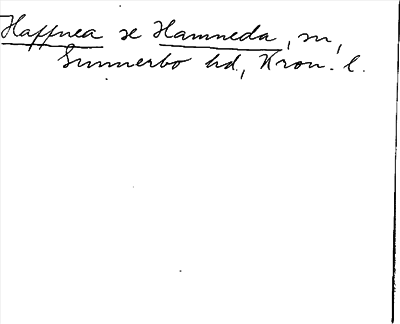 Haffnea se Hamneda, sn,
Sunnerbo hd, Kron. l.